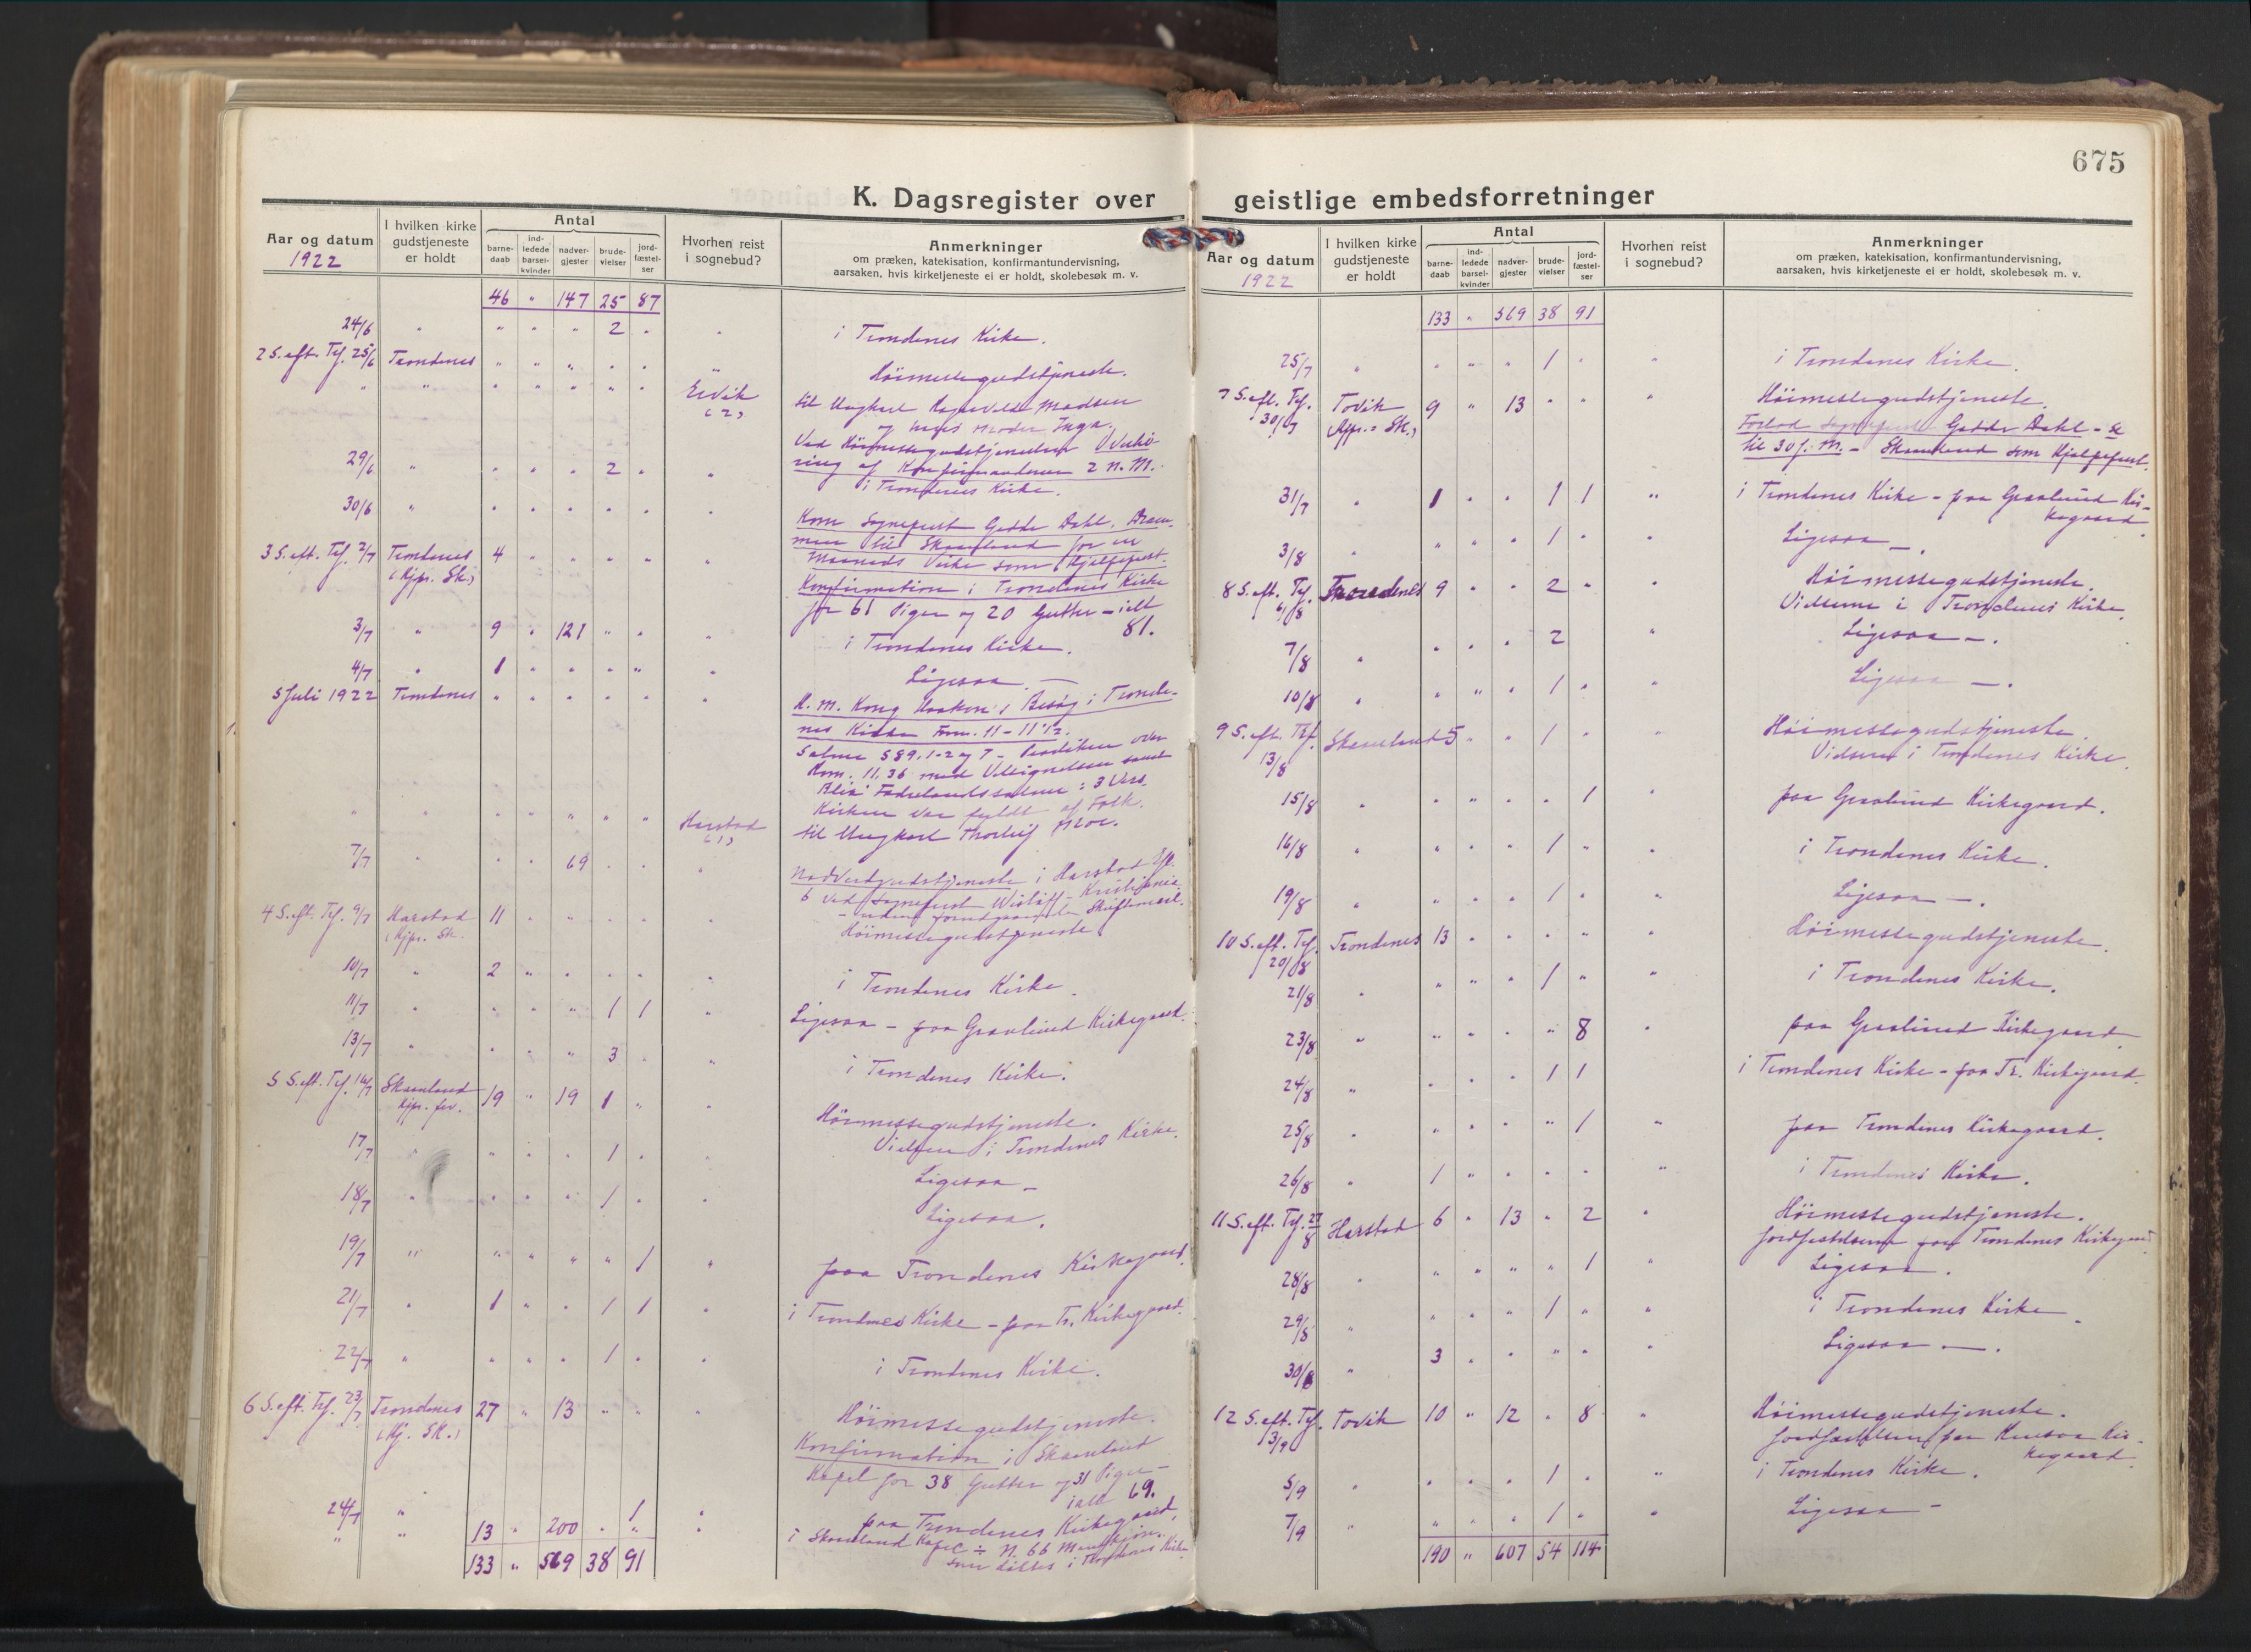 675
K. Dagsregister over geistlige embedsforretninger
Aar og datum
1922
I hvilken kirke gudstjeneste er holdt
Antal
barne-daab
ind-ledede barsel-kvinder
nadver-gjester
brude-vielser
jord-fæstel-ser
Hvorhen reist i sognebud?
Anmerkninger
om præken, katekisation, konfirmantundervisning,
aarsaken, hvis kirketjeneste ei er holdt, skolebesøk m. v.
46 " 147 25 87
24/6 " " " " 2 " " i Trondenes Kirke.
2 S. eft. Trf. 25/6 Trondenes " " " " " " Höimessegudstjeneste.
" " " " " " " Ervik (2) til Ungkarl Madsen
og hans Moder Inga.
Ved Höimessegudstjenesten
29/6 " " " " 2 " " af Konfirmanderne 2 n. M.
i Trondenes Kirke.
30/6 " " " " " " " Kom Sognepræst Gedde Dahl,
til Skaanland for en
3 S. eft. Trf. 2/7 Trondenes 4 " " " " Maaneds Virke som Hjelpepræst.
(Hjpr. Sk.) Konfirmation i Trondenes Kirke
for 61 Piger og 20 Gutter - ialt
81.
3/7 " 9 " 121 " " " i Trondenes Kirke.
4/7 " 1 " " " " " Ligesaa —
5 Juli 1922 Trondenes " " " " " " H. M. Kong Haakon's Besög i Tronde-
nes Kirke Form. 11 - 11 1/2.
Salme 589. 1-2 og 7 - over
Rom. 11.36 med Velsignelsen samt
Fædrelandssalme: 3 Vers.
Kirken var fyldt af Folk.
" " " " " " " Harstad (1) til Ungkarl Thorleif Moe.
7/7 " " " 69 " " " Nadverdgudstjeneste i Harstad
6 ved Sognepræst Wislöff - Kristiania
- uden
4 S. eft. Trf. 9/7 Harstad 11 " " " " "
(Hjpr. Sk. Höimessegudstjeneste
10/7 " 2 " " " " " i Trondenes Kirke.
11/7 " " " " 1 1 " Ligesaa - paa Gravlund Kirkegaard.
13/7 " " " " 3 " " i Trondenes Kirke.
5 S. eft. Trf. 16/7 Skaanland 19 " 19 1 " " Höimessegudstjeneste.
Hjpr. fer. Vielsen i Trondenes Kirke.
17/7 " " " " 1 " " Ligesaa —
18/7 " " " " 1 " " Ligesaa.
19/7 " " " " " 1 " paa Trondenes Kirkegaard.
21/7 " 1 " " 1 1 " i Trondenes Kirke - paa Tr. Kirkegaard.
22/7 " " " " 1 " " i Trondenes Kirke.
6 S. eft. Trf. 23/7 Trondenes 27 " 13 " " " Höimessegudstjeneste.
(Hj. Sk.) Konfirmation i Skaanland
Kapel for 38 Gutter og 31 Piger -
ialt 69.
24/7 " 1 " paa Trondenes Kirkegaard,
" " 13 " 200 " " " i Skaanland Kapel ÷ N. 66 Mandkjøn.
som döbtes i Trondenes Kirke
133 " 569 38 91
Aar og datum
1922
I hvilken kirke gudstjeneste er holdt
Antal
barne-daab
ind-ledede barsel-kvinder
nadver-gjester
brude-vielser
jord-fæstel-ser
Hvorhen reist i sognebud?
Anmerkninger
om præken, katekisation, konfirmantundervisning,
aarsaken, hvis kirketjeneste ei er holdt, skolebesøk m. v.
133 " 569 38 91
25/7 " " " " 1 " " i Trondenes Kirke.
7 S. eft. Trf. 30/7 Tovik 9 " 13 " " " Höimessegudstjeneste.
(Hjpr. Sk.) Forlod Sognepræst Gedde Dahl -
til 30 f. M. - Skaanland som Hjelpepræst.
31/7 " 1 " " 1 1 " i Trondenes Kirke - paa Gravlund Kir-
kegaard.
3/8 " " " " 1 " " Ligesaa —.
8 S. eft. Trf. 6/8 Trondenes 9 " " 2 " " Höimessegudstjeneste.
Vielserne i Trondenes Kirke.
7/8 " " " " 2 " Ligesaa —.
10/8 " " " " 1 " " Ligesaa —.
9 S. eft. Trf. 13/8 Skaanland 5 " " 1 " " Höimessegudstjeneste.
Vielsen i Trondenes Kirke.
15/8 " " " " " 1 " paa Gravlund Kirkegaard.
16/8 " " " " 1 " " i Trondenes Kirke.
19/8 " " " " 1 " " Ligesaa —.
10 S. eft. Trf. 20/8 Trondenes 13 " " " " " Höimessegudstjeneste.
21/8 " " " " 1 " " i Trondenes Kirke.
23/8 " " " " " 8 " paa Gravlund Kirkegaard.
24/8 " " " " 1 1 i Trondenes Kirke - paa Tr. Kirkegaard.
25/8 " " " " " 1 " paa Trondenes Kirkegaard.
26/8 " 1 " " " " " i Trondenes Kirke.
11 S. eft. Trf. 27/8 Harstad 6 " 13 " 2 " Höimessegudstjeneste.
Jordfæstelserne paa Trondenes Kirkegaard
28/8 " " " " " 1 " Ligesaa.
29/8 " " " " 1 " " i Trondenes Kirke.
30/8 " 3 " " " " " Ligesaa —.
12 S. eft. Trf. 3/9 Tovik 10 " 12 " 8 " Höimessegudstjeneste.
Jordfæstelsen paa Kir-
kegaard.
5/9 " " " " 1 " " i Trondenes Kirke.
7/9 " " " " 1 " " Ligesaa -
190 " 607 54 114